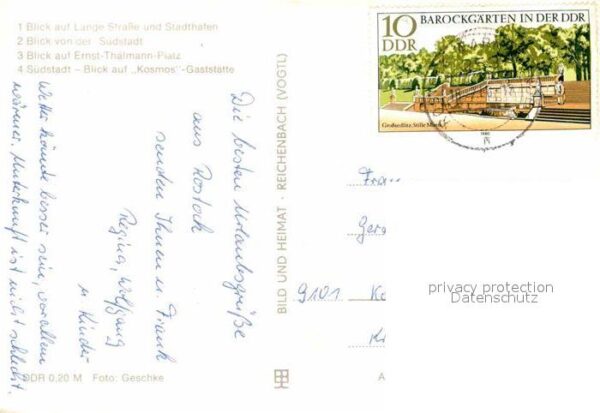 1 Blick auf Lange Straße und Stadthafen
2 Blick von der Südstadt
3 Blick auf Ernst-Thälmann-Platz
4 Südstadt – Blick auf „Kosmos"-Gaststätte
Die besten Urlaubsgrüße
aus Rostock
senden Ihnen u. Frank
Regina, Wolfgang
u. Kinder
Wetter könnte besser sein, vor allem
wärmer, Unterkunft ist nicht schlecht.
DDR 0,20 M Foto: Geschke
BILD UND HEIMAT · REICHENBACH (VOGTL)
10
DDR
BAROCKGÄRTEN IN DER DDR
Großsedlitz, Stille Musik
1980
9101
privacy protection
Datenschutz
A